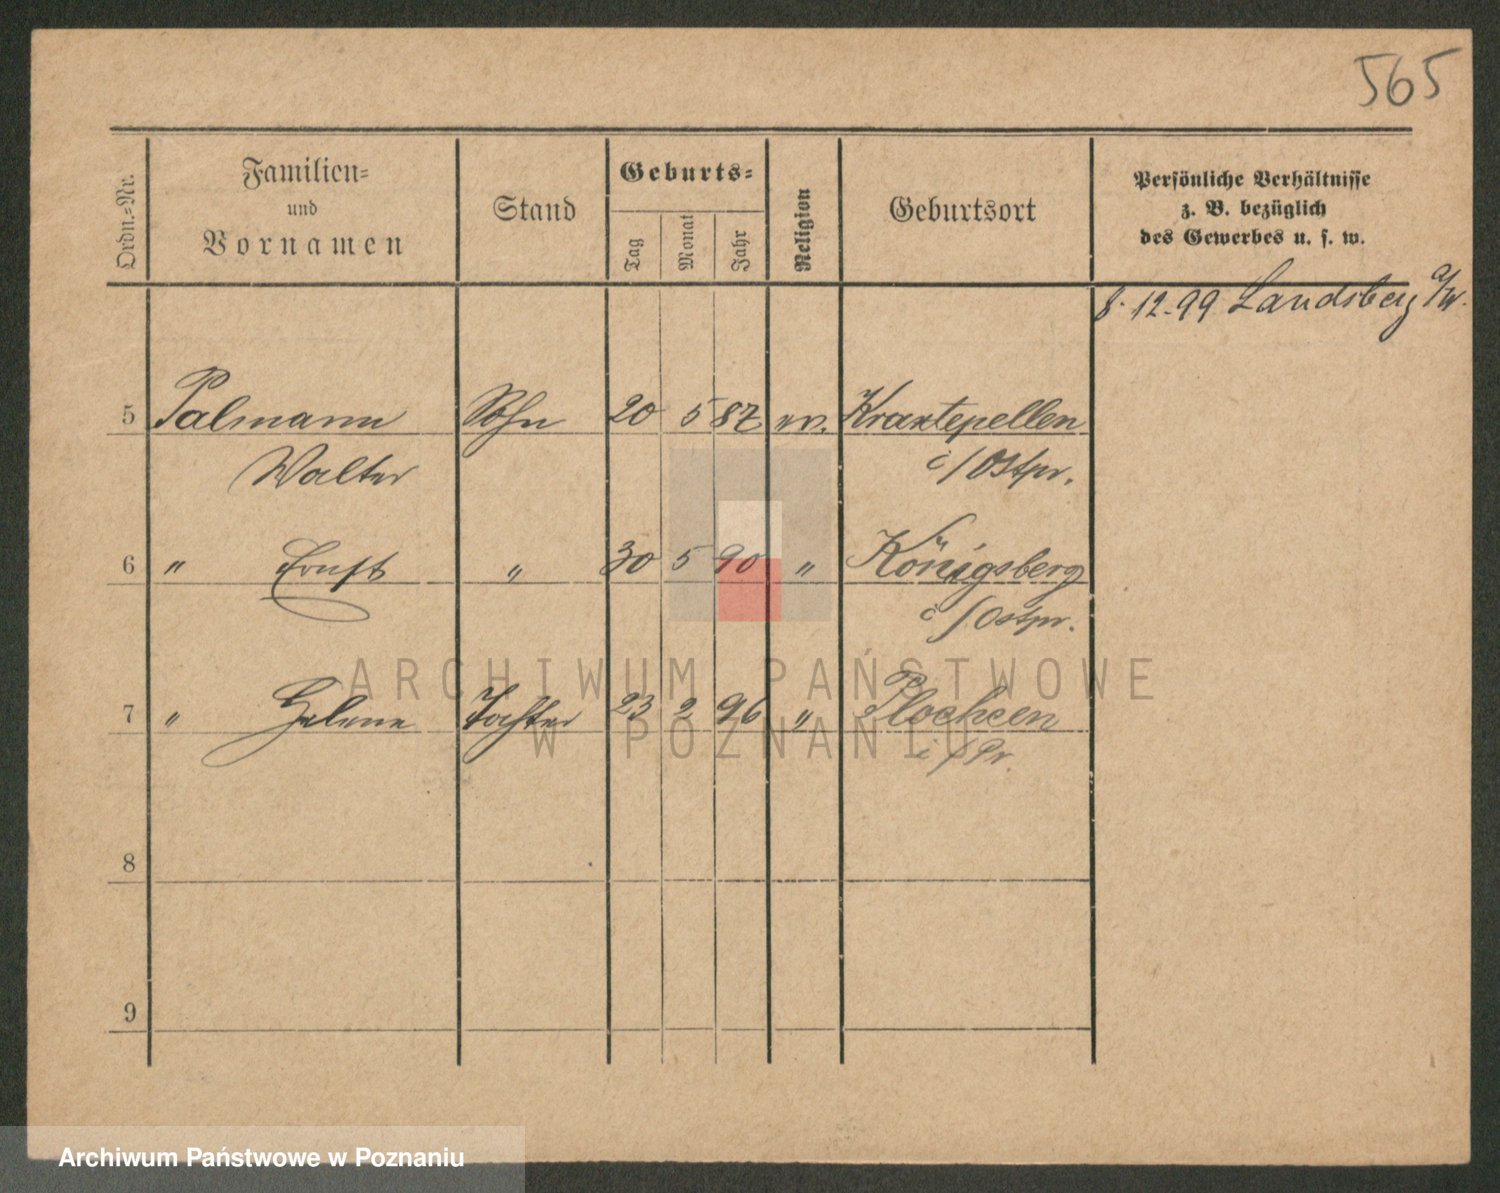 565
Ordn.-Nr.
Familien-
und
Vornamen
Stand
Geburts-
Tag
Monat
Jahr
Religion
Geburtsort
Persönliche Verhältnisse
z. B. bezüglich
des Gewerbes u. s. w.
8. 12. 99 Landsberg a/W.
5 Palmann Sohn 20 5 87 ev. Kraxtepellen
Walter i/Ostpr.
6 " Ernst " 30 5 90 " Königsberg
i/Ostpr.
7 " Helene Tochter 23 2 96 "
i/Pr.
8
9
ARCHIWUM PAŃSTWOWE
W POZNANIU
Archiwum Państwowe w Poznaniu